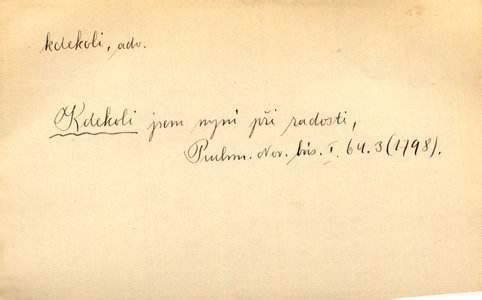 kdekoli, adv.
Kdekoli jsem nyní při radosti,
Puchm. Nov. bás. I. 64. 3 (1798).